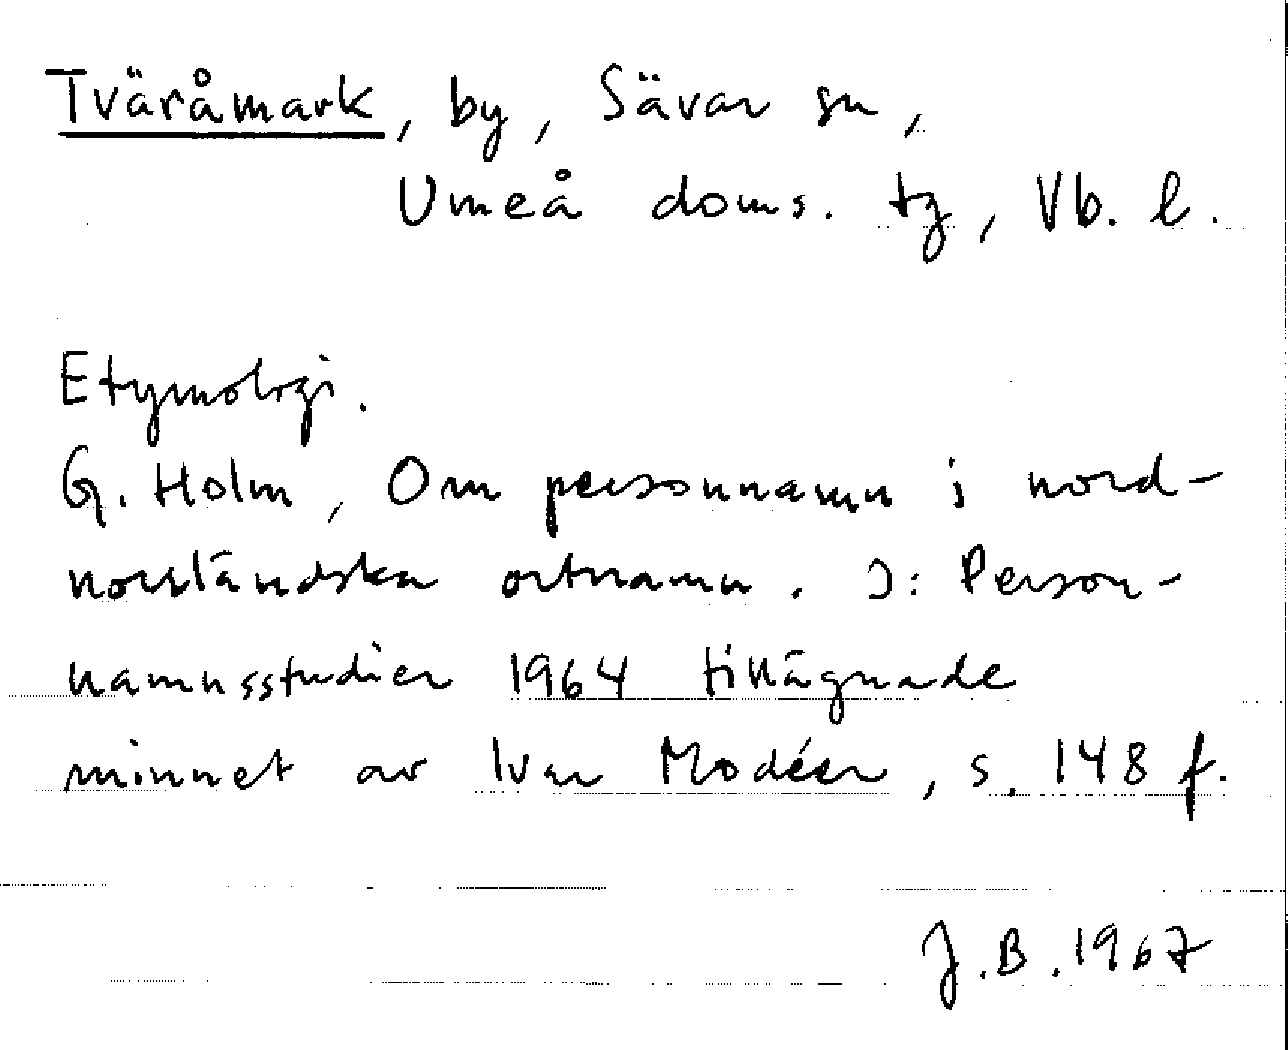 Tväråmark, by, Sävar sn,
Umeå doms. tg, Vb. l.
Etymologi.
G. Holm, Om personnamn i nord-
norrländska ortnamn. I: Person-
namnsstudier 1964 tillägnade
minnet av Ivar Modéer, s. 148 f.
J.B. 1967